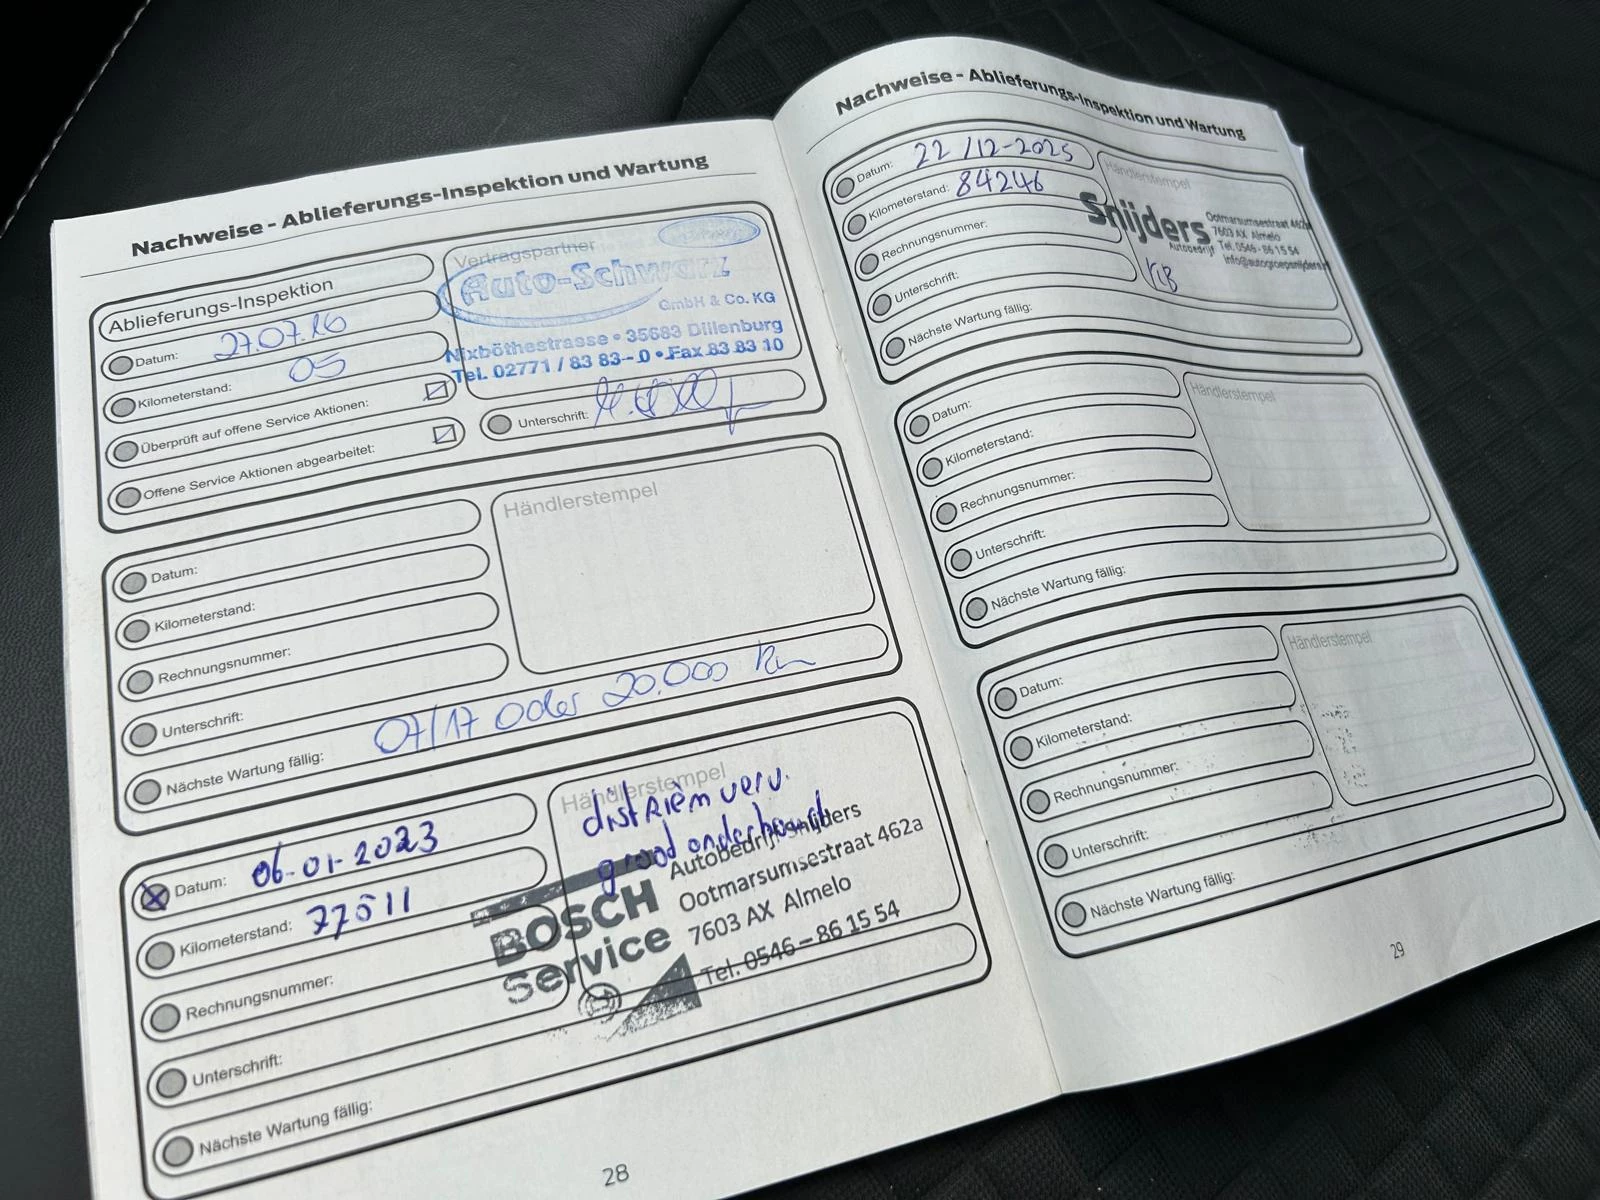 Nachweise - Ablieferungs-Inspektion und Wartung
Ablieferungs-Inspektion
Datum: 27.07.16
Kilometerstand: 05
Überprüft auf offene Service Aktionen:
Offene Service Aktionen abgearbeitet:
Vertragspartner
Auto-Schwarz
GmbH & Co. KG
Nixböthestrasse • 35683 Dillenburg
Tel. 02771 / 83 83-0 • Fax 83 83 10
Unterschrift:
Datum:
Kilometerstand:
Rechnungsnummer:
Unterschrift:
Nächste Wartung fällig: 07/17 oder 20.000 km
Händlerstempel
Datum: 06-01-2023
Kilometerstand: 77511
Rechnungsnummer:
Unterschrift:
Nächste Wartung fällig:
Händlerstempel
distRièm verv.
grood onderhourt
BOSCH
Service
Autobedrijf Snijders
Ootmarsumsestraat 462a
7603 AX Almelo
Tel. 0546 - 86 15 54
28
Nachweise - Ablieferungs-Inspektion und Wartung
Datum: 22/12-2025
Kilometerstand: 84246
Rechnungsnummer:
Unterschrift:
Nächste Wartung fällig:
Händlerstempel
Snijders
Autobedrijf
Ootmarsumsestraat 462a
7603 AX Almelo
Tel. 0546 - 86 15 54
KB
Datum:
Kilometerstand:
Rechnungsnummer:
Unterschrift:
Nächste Wartung fällig:
Händlerstempel
Datum:
Kilometerstand:
Rechnungsnummer:
Unterschrift:
Nächste Wartung fällig:
Händlerstempel
29